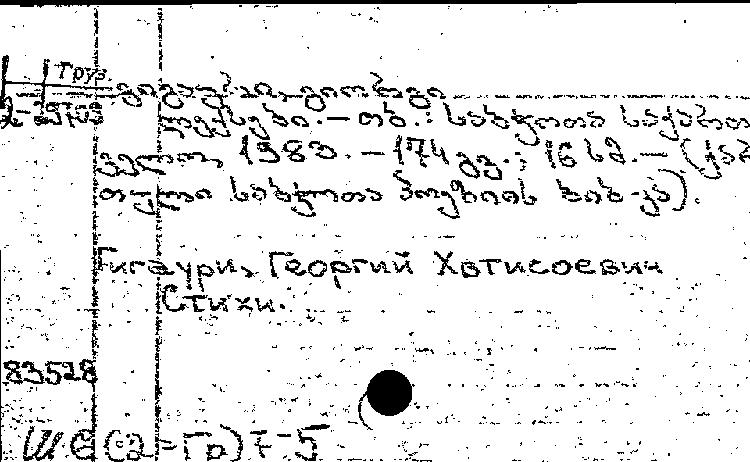 Груз.
გიგაური, გიორგი
2-29703
ლექსები. — თბ.: საბჭოთა საქართ
ველო, 1983. — 174 გვ.; 16 სმ. — (ქარ
თული საბჭოთა პოეზიის ბიბ-კა).
Гигаури, Георгий Хвтисоевич
Стихи.
83528
Ш 6 (=2=Гр) 7-5